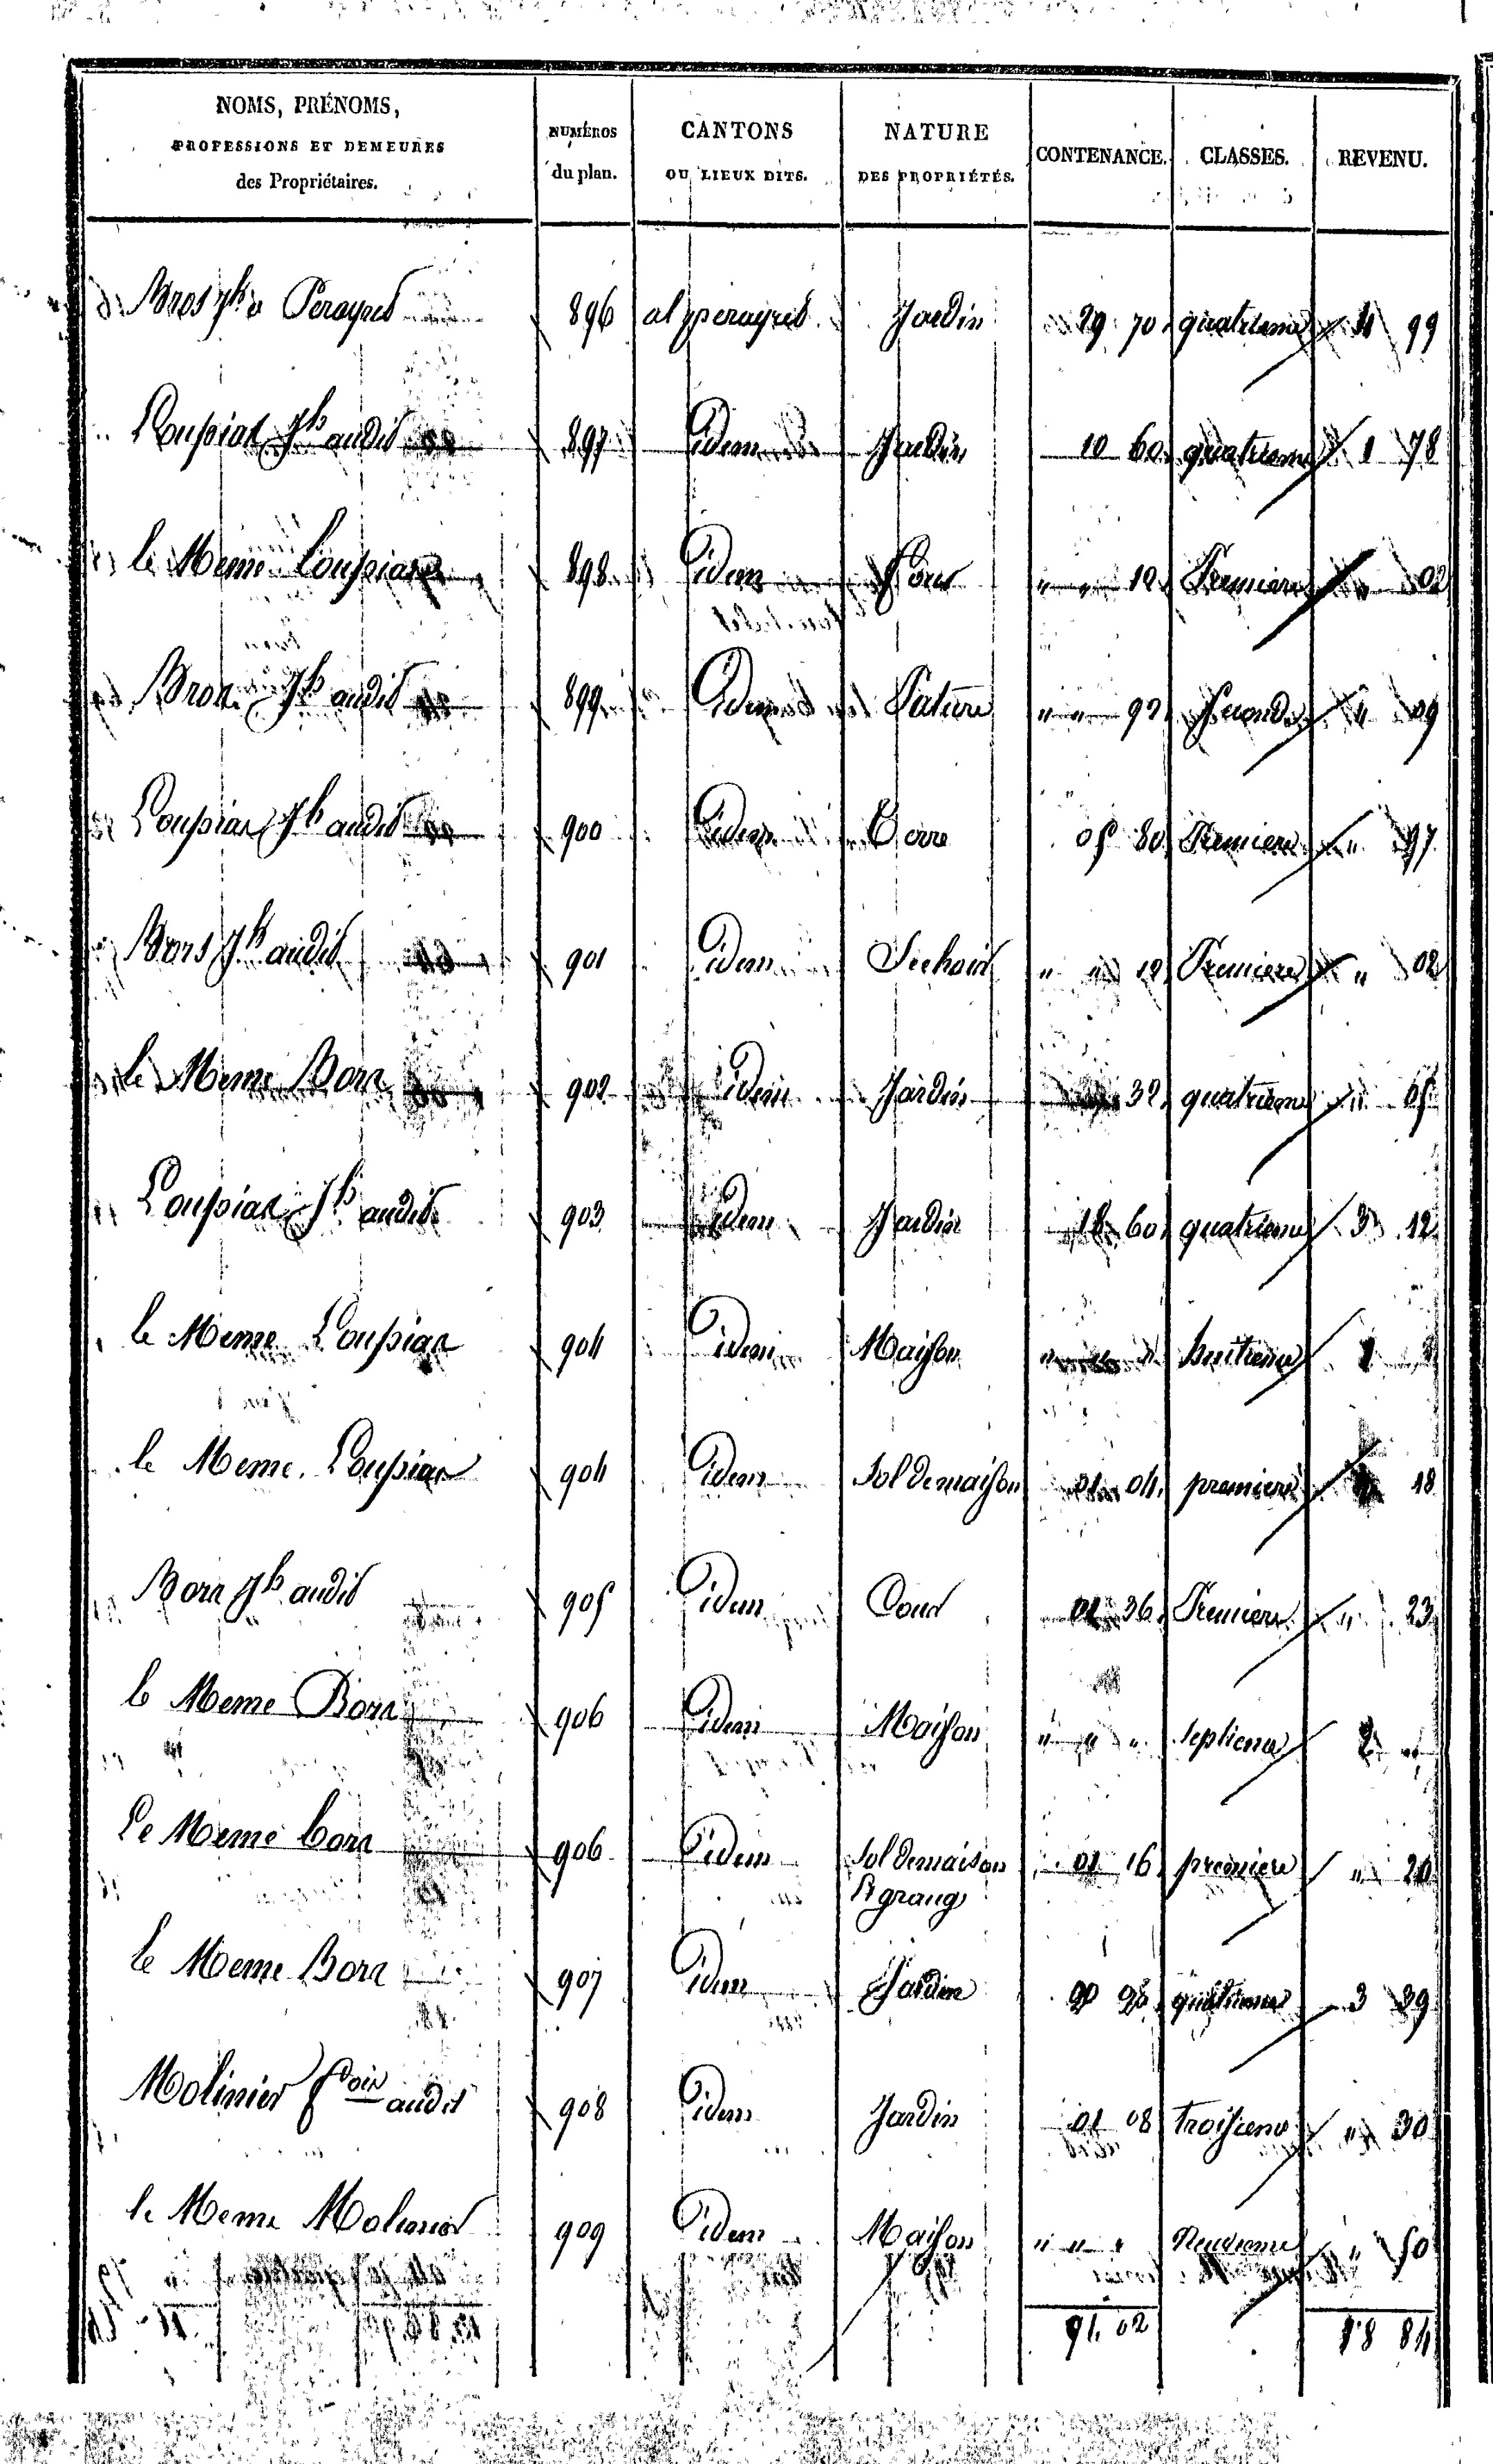 NOMS, PRÉNOMS,
PROFESSIONS ET DEMEURES
des Propriétaires.
NUMÉROS
du plan.
CANTONS
OU LIEUX DITS.
NATURE
DES PROPRIÉTÉS.
CONTENANCE.
CLASSES.
REVENU.
Jh a Perayres 896 al perayres Jardin 29 70 quatrieme 4 99
Loupiac Jh audit 897 idem Jardin 10 60 quatrieme 1 78
le Meme Loupiac 898 idem " " 12 Premiere " 02
Jh audit 899 idem Pature " " 92 Seconde " 09
Loupiac Jh audit 900 idem Terre 05 80 Premiere " 97
Bors Jh audit 901 idem Sechoir " " 12 Premiere " 02
le Meme Bora 902 idem Jardin 32 quatrieme " 05
Loupiac Jh audit 903 idem Jardin 18 60 quatrieme 3 12
le Meme Loupiac 904 idem Maison " " " huitieme 1
le Meme Loupiac 904 idem Sol de maison 01 04 premiere 18
Bora Jh audit 905 idem Cour 01 36 Premiere " 23
le Meme Bora 906 idem Maison " " " septieme 2 "
Le Meme bora 906 idem Sol de maison 01 16 premiere " 20
et grange
le Meme Bora 907 idem Jardin 20 20 quatrieme 3 39
Molinier audit 908 idem Jardin 01 08 troisieme " 30
le Meme Molinier 909 idem Maison " " " Neuvieme " 50
91. 02 18 84